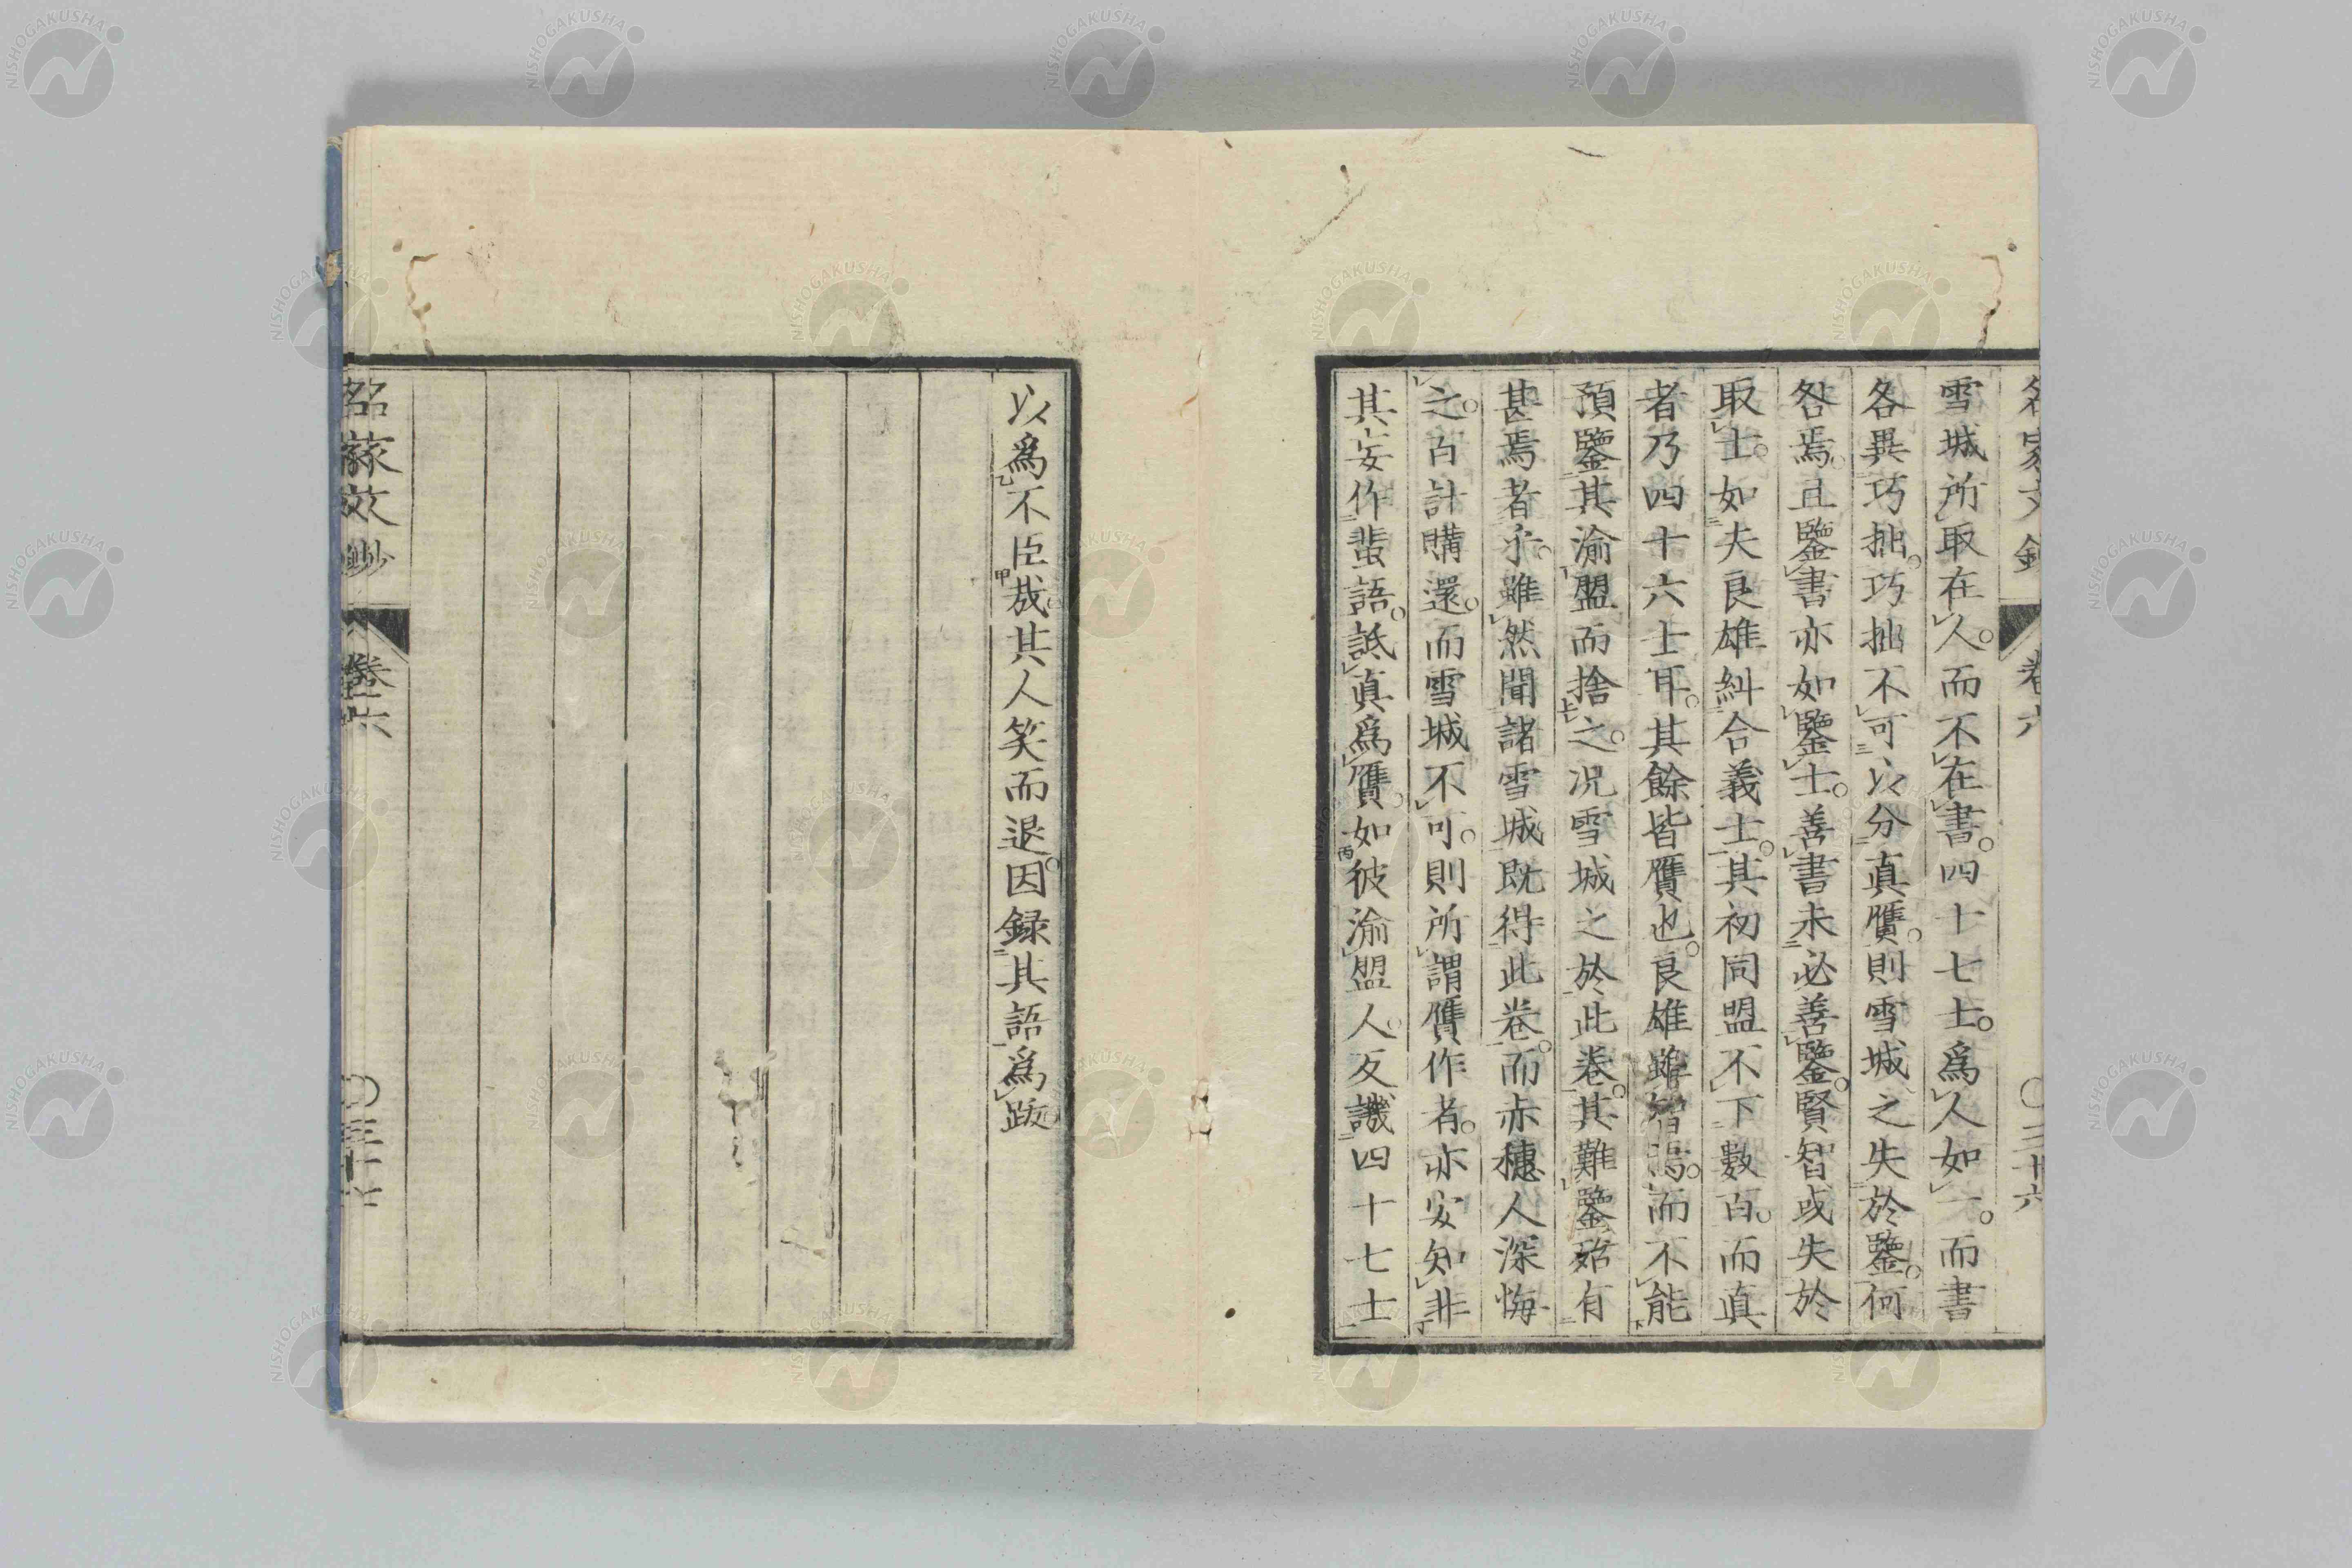 名家文鈔 卷六 〇三十六
雪城所取在人。而不在書。四十七士。爲人如一。而書
各異巧拙。巧拙不可以分真贋。則雪城之失於鑒。何
咎焉。且鑒書亦如鑒士。善書未必善鑒。賢智或失於
取士。如夫良雄糾合義士。其初同盟不下數百。而真
者乃四十六士耳。其餘皆贋也。良雄雖智。而不能
預鑒其渝盟而捨之。况雪城之於此卷。其難鑒殆有
甚焉者乎。雖然聞諸雪城既得此卷。而赤穗人深悔
之。百計購還。而雪城不可。則所謂贋作者。亦安知非
其妄作蜚語。詆真爲贋。如彼渝盟人反譏四十七士
以爲不臣哉。其人笑而退。因録其語爲跋
名家文鈔 卷六 〇三十六
NISHOGAKUSHA